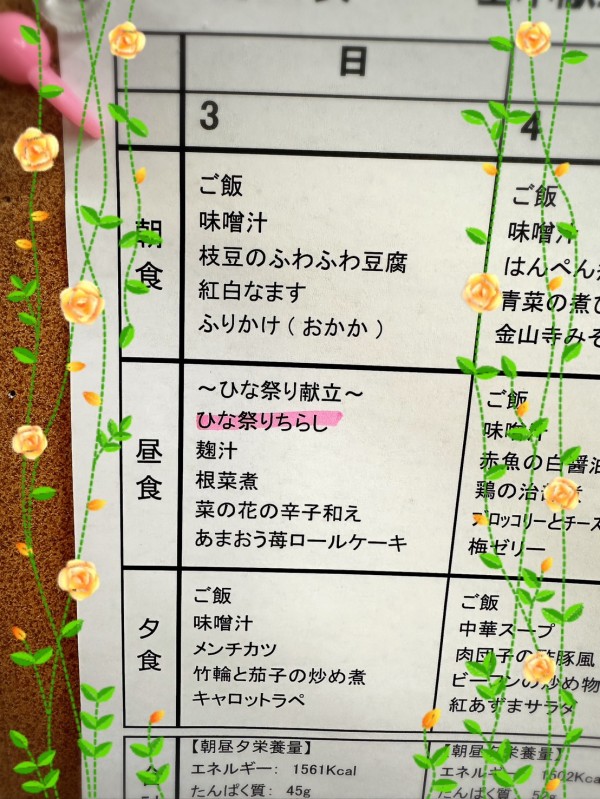 日
3
4
朝食
ご飯
味噌汁
枝豆のふわふわ豆腐
紅白なます
ふりかけ（おかか）
ご飯
味噌汁
はんぺん
青菜の煮び
金山寺みそ
昼食
～ひな祭り献立～
ひな祭りちらし
麹汁
根菜煮
菜の花の辛子和え
あまおう苺ロールケーキ
ご飯
味噌汁
赤魚の白醤油
鶏の治部煮
ブロッコリーとチーズ
梅ゼリー
夕食
ご飯
味噌汁
メンチカツ
竹輪と茄子の炒め煮
キャロットラペ
ご飯
中華スープ
肉団子の酢豚風
ビーフンの炒め物
紅あずまサラダ
【朝昼夕栄養量】
エネルギー： 1561Kcal
たんぱく質： 45g
【朝昼夕栄養量】
エネルギー： 1502Kcal
たんぱく質：